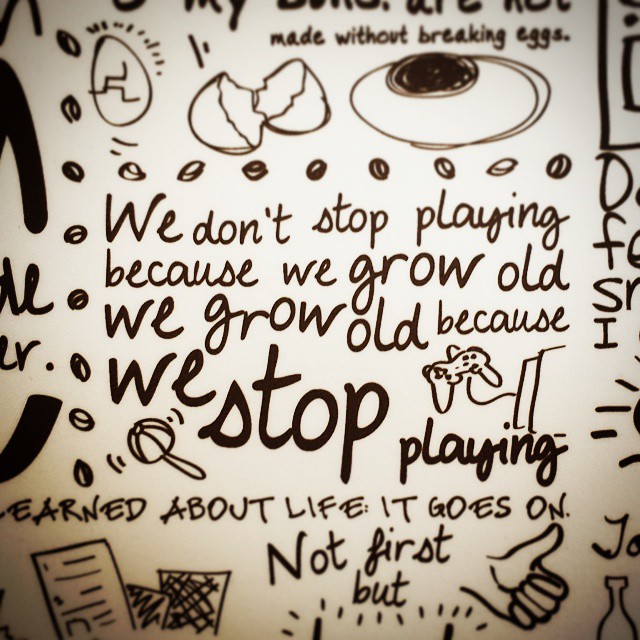 my
are not
made without breaking eggs.
We don't stop playing
because we grow old
we grow old because
we stop
playing
er.
EARNED ABOUT LIFE: IT GOES ON.
Not first
but
I